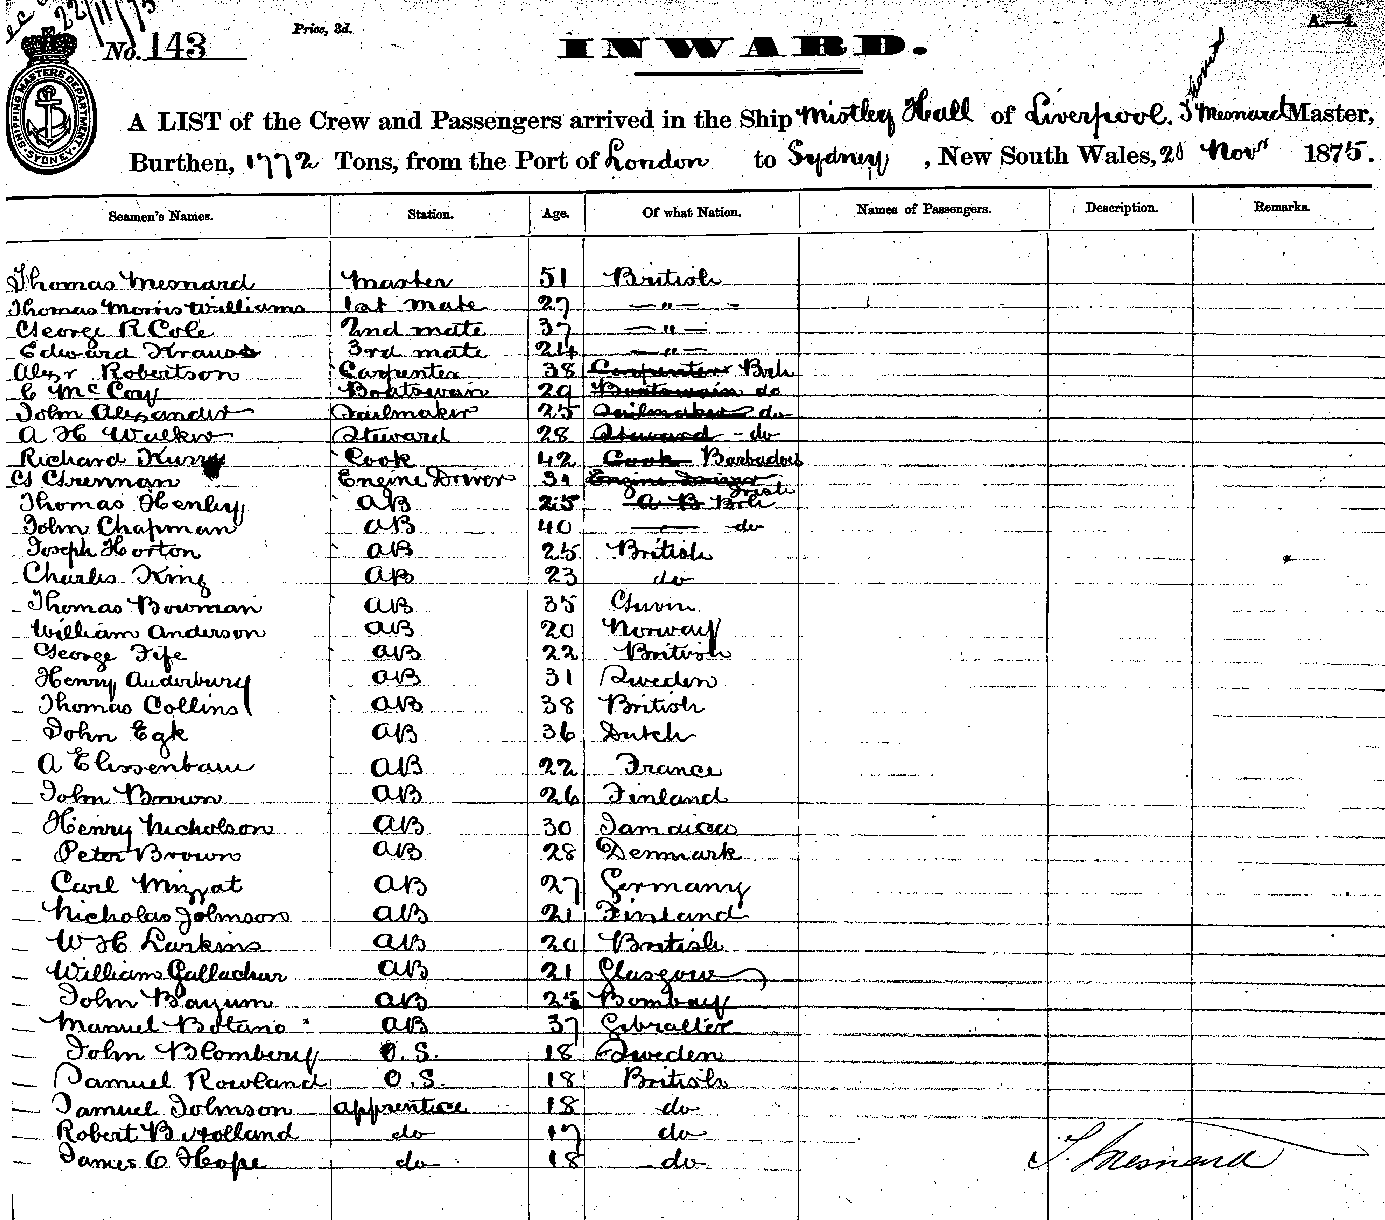 22/11/75
No. 143
Price, 3d.
INWARD.
SHIPPING MASTERS DEPARTMENT SYDNEY
A LIST of the Crew and Passengers arrived in the Ship Mistley Hall of Liverpool. T Mesnard Master,
Burthen, 1772 Tons, from the Port of London to Sydney, New South Wales, 20 Novr 1875.
Seamen's Names. Station. Age. Of what Nation. Names of Passengers. Description. Remarks.
Thomas Mesnard Master 51 British
Thomas Morris Williams 1st mate 27 — " —
George R Cole 2nd mate 37 — " —
Edward Krauss 3rd mate 24 — " —
Alexr Robertson Carpenter 38 Carpenter Brh
C McCoy Boatswain 29 Boatswain do
John Alexander Sailmaker 25 Sailmaker do
A H Walker Steward 28 Steward - do
Richard Kurry Cook 42 Cook Barbados
Engine Driver 31 Engine Driver Irish
Thomas Henley AB 25 AB Brh
John Chapman AB 40 — do
Joseph Horton AB 25 British
Charles King AB 23 do
Thomas Bowman AB 35
William Anderson AB 20 Norway
George Fife AB 22 British
Henry Auderbury AB 31 Sweden
Thomas Collins AB 38 British
John Egk AB 36 Dutch
A Elissenbau AB 22 France
John Brown AB 26 Finland
Henry Nicholson AB 30 Jamaica
Peter Brown AB 28 Denmark
Carl Mizzat AB 27 Germany
Nicholas Johnson AB 21 Finland
W H Larkins AB 20 British
William Gallacher AB 21 Glasgow
John Bayum AB 25 Bombay
Manuel Botano AB 37 Gibralter
John Blombery O.S. 18 Sweden
Samuel Rowland O.S. 18 British
Samuel Johnson apprentice 18 do
Robert B Holland do 17 do
James C Hope do 18 do
T. Mesnard